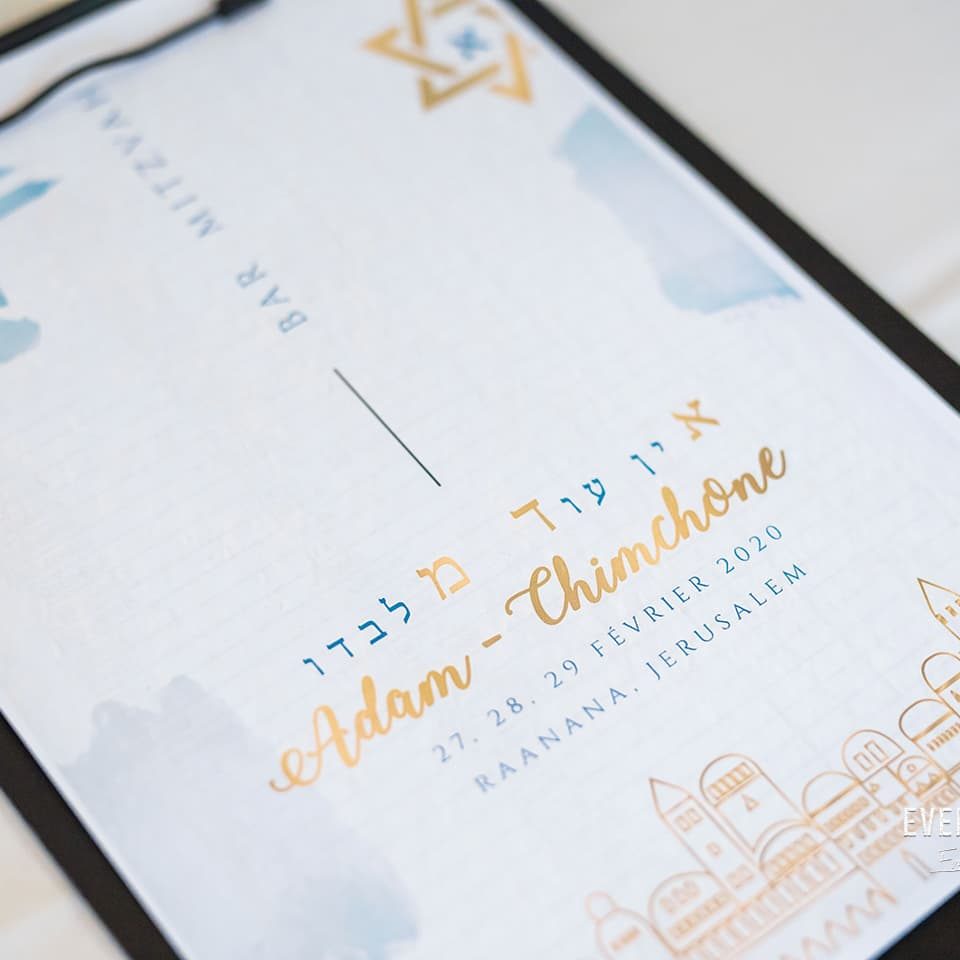 BAR MITZVAH
אין עוד מלבדו
Adam - Chimchone
27. 28. 29 FÉVRIER 2020
RAANANA. JERUSALEM